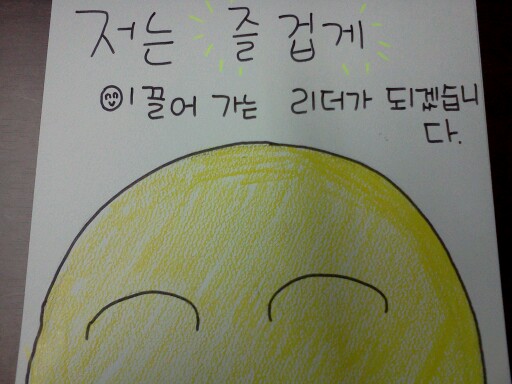 저는 즐겁게
이끌어 가는 리더가 되겠습니
다.